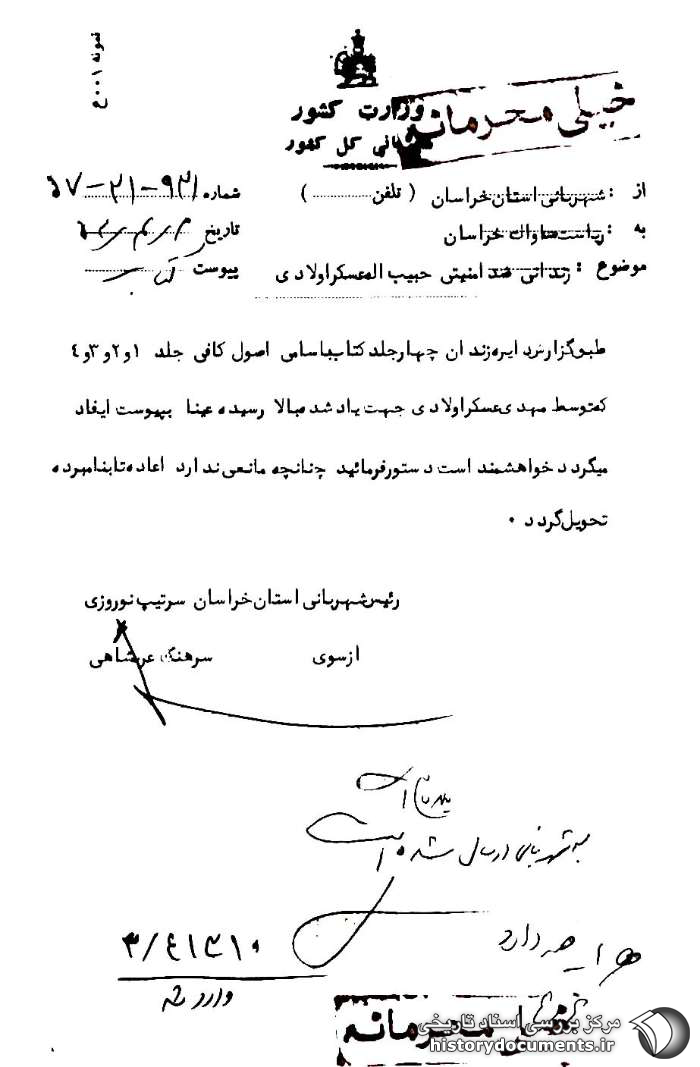 نمونه ۰۰۱ ع
وزارت کشور
کل کشور
خیلی محرمانه
از : شهربانی استان خراسان ( تلفن ............ )
شماره
به : ریاست ساواک خراسان
تاریخ
موضوع : زندانی ضد امنیتی حبیب اله عسکراولادی
پیوست
طبق گزارش دایره زندان چهار جلد کتاب باسامی اصول کافی جلد ۱و۲و۳و٤
که توسط مهدی عسکراولادی جهت یاد شده بالا رسیده عینا بپیوست ایفاد
میگردد خواهشمند است دستور فرمائید چنانچه مانعی ندارد اعاده تا بنامبرده
تحویل گردد ۰
رئیس شهربانی استان خراسان سرتیپ نوروزی
ازسوی سرهنگ عرشاهی
به شهربانی ارسال شده است
۳/٤۱۳۱۰
وارد شد
محرمانه
مرکز بررسی اسناد تاریخی
historydocuments.ir